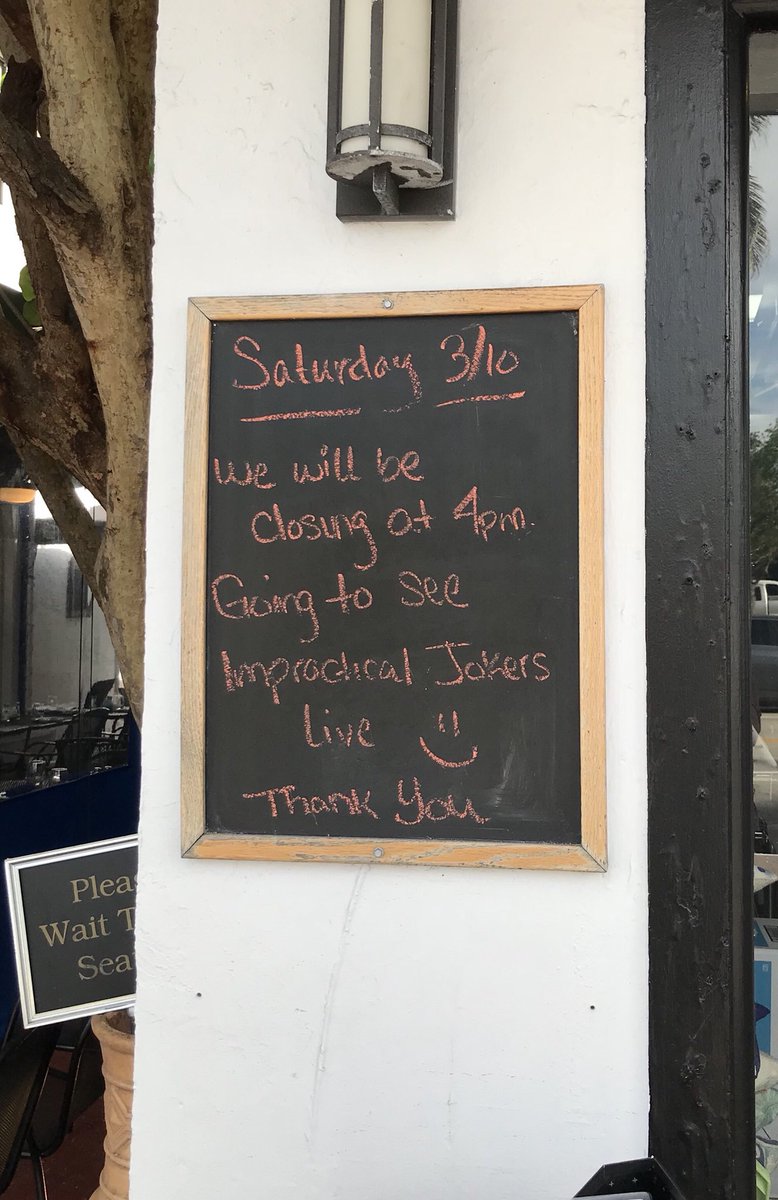 Saturday 3/10
we will be
closing at 4pm.
Going to see
Impractical Jokers
Live
Thank You
Wait